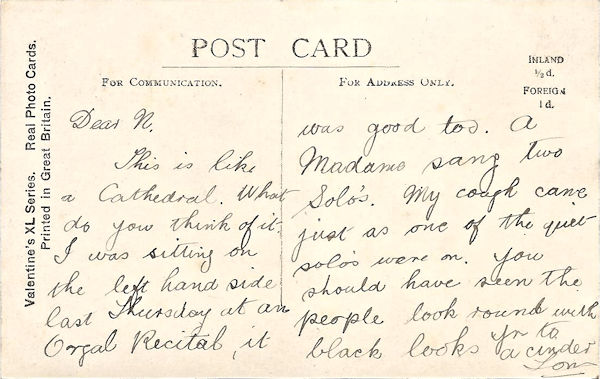 Valentine's XL Series. Real Photo Cards.
Printed in Great Britain.
POST CARD
FOR COMMUNICATION.
FOR ADDRESS ONLY.
INLAND
½d.
FOREIGN
1d.
Dear N.
This is like
a Cathedral. What
do you think of it.
I was sitting on
the left hand side
last Thursday at an
Orgal Recital, it
was good too. A
Madame sang two
Solo's. My cough came
just as one of the quiet
solo's were on. You
should have seen the
people look round with
black looks Yr to
a cinder
Tom